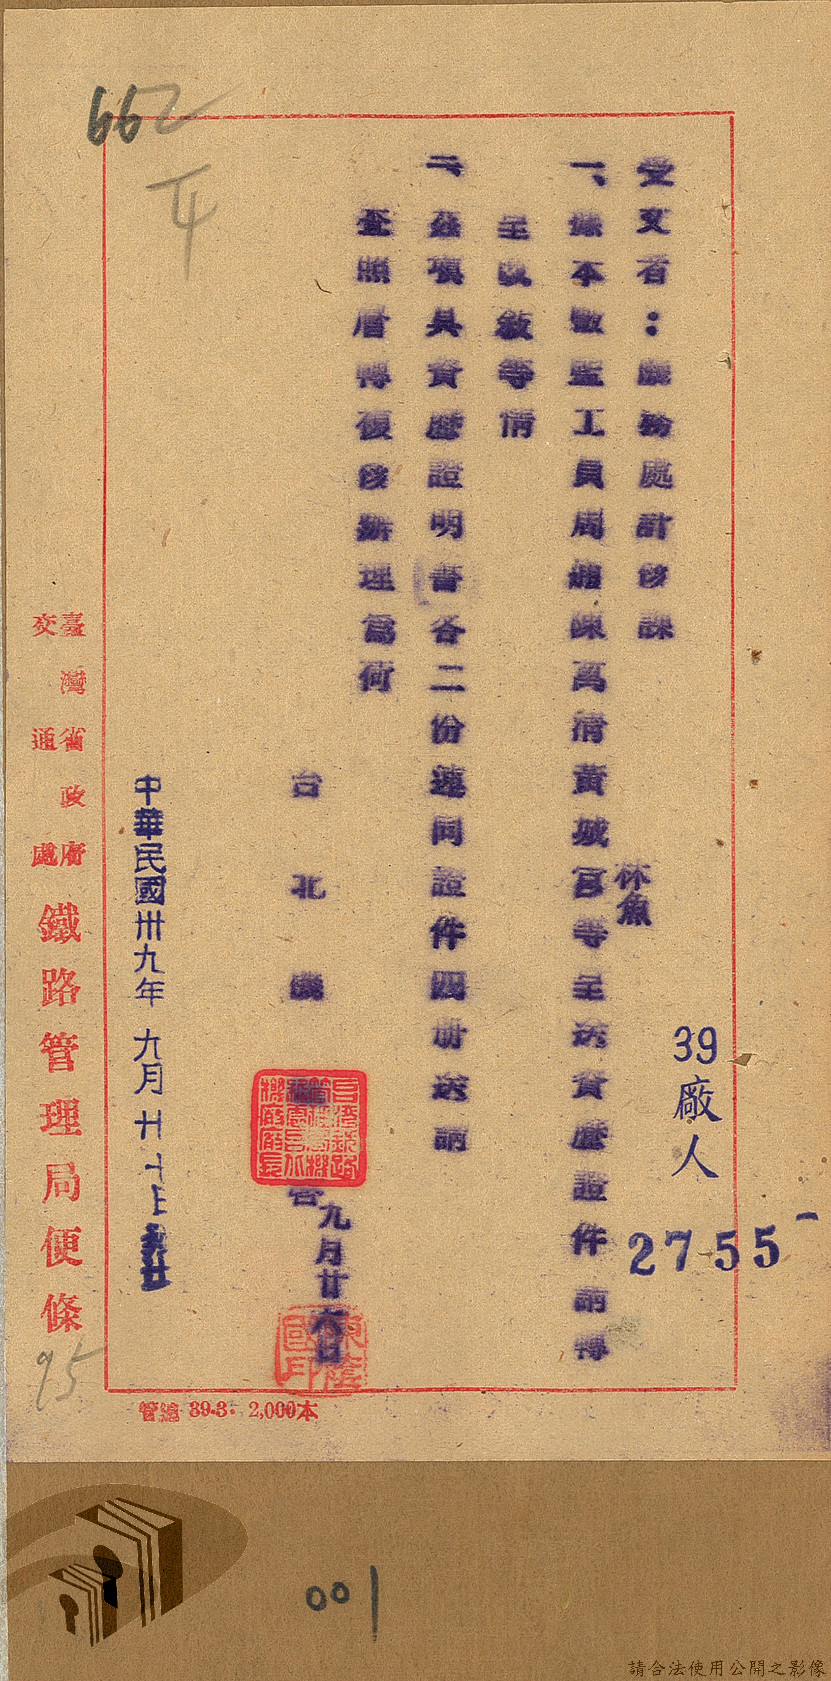 受文者：廠務處計移課
39廠人
2755
一、據本廠監工員周進陳萬清黃城等呈送資歷證件請轉
林魚
呈改敘等情
二、茲填具資歷證明書各二份連同證件四册送請
查照層轉復移辦理為荷
台北機
九月廿六日
中華民國卅九年九月廿
臺灣省政府
交通處
鐵路管理局便條
管總 39.3. 2,000本
662
95
001
請合法使用公開之影像